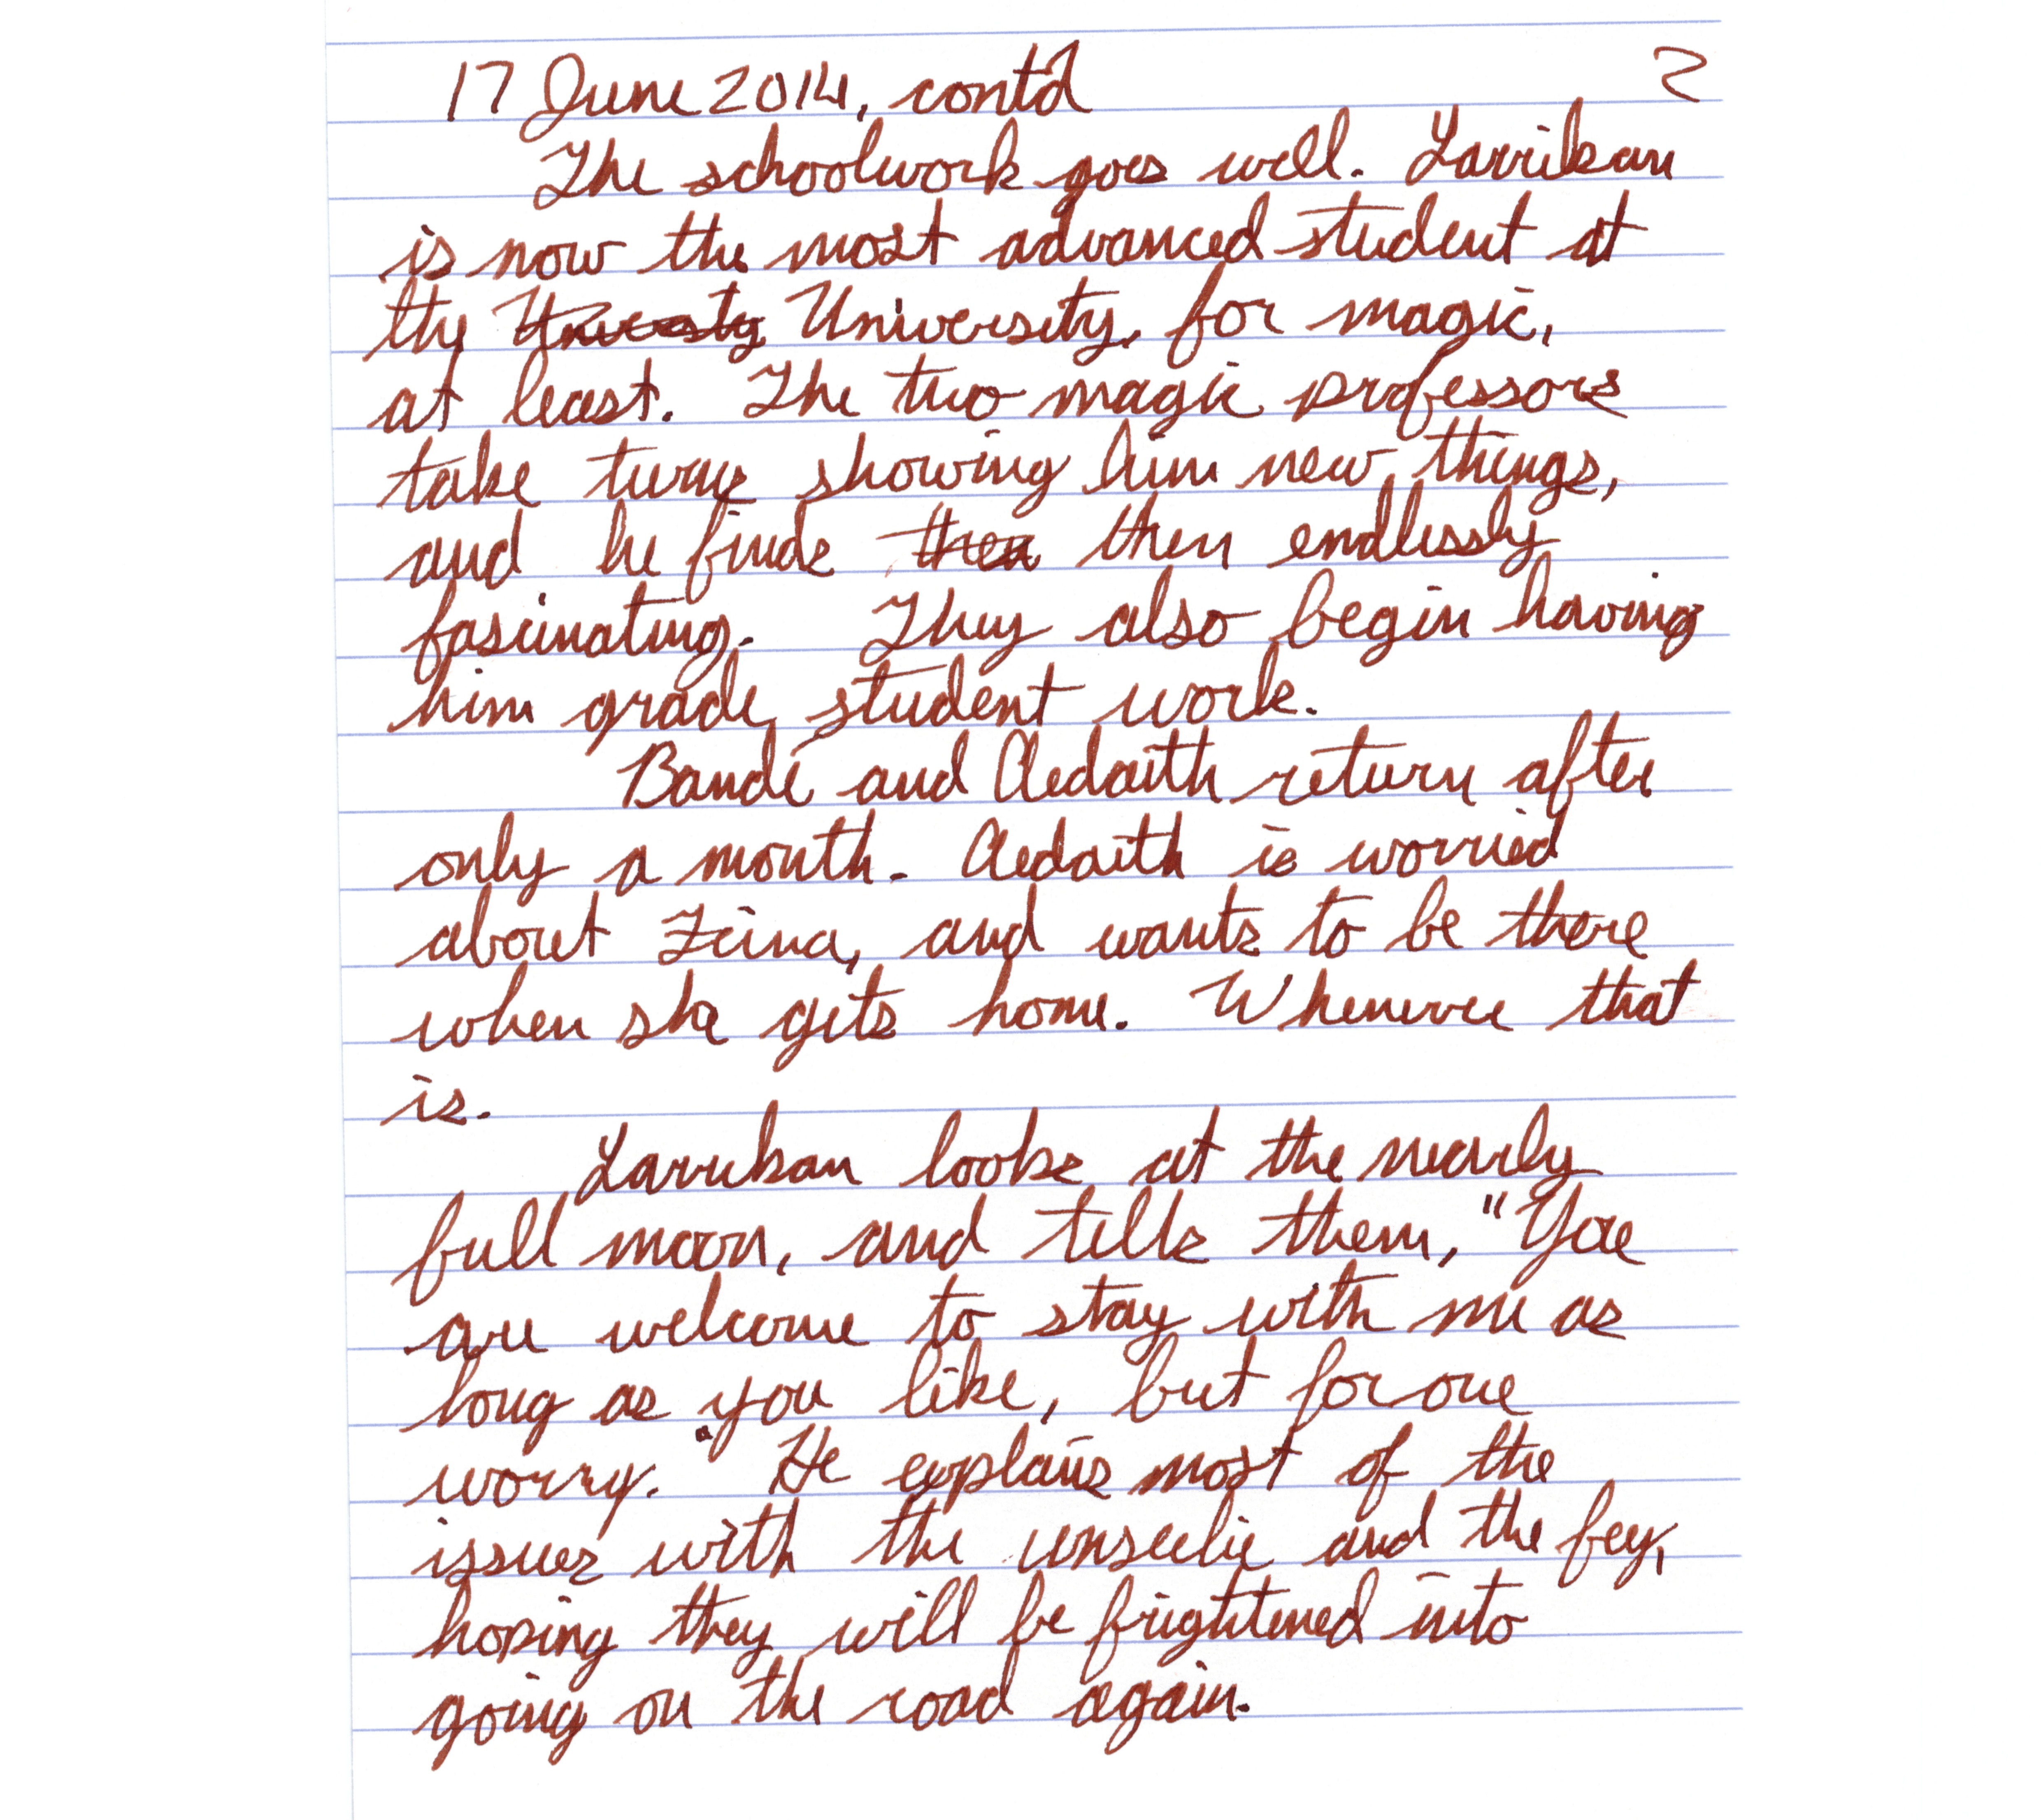 17 June 2014, cont'd 2
The schoolwork goes well. Larrikan
is now the most advanced student at
the University University, for magic,
at least. The two magic professors
take turns showing him new things,
and he finds then them endlessly
fascinating. They also begin having
him grade student work.
Bandé and Aedaith return after
only a month. Aedaith is worried
about and wants to be there
when she gets home. Whenever that
is.
Larrikan looks at the nearly
full moon, and tells them, "You
are welcome to stay with me as
long as you like, but for one
worry." He explains most of the
issues with the unseelie and the fey,
hoping they will be frightened into
going on the road again.